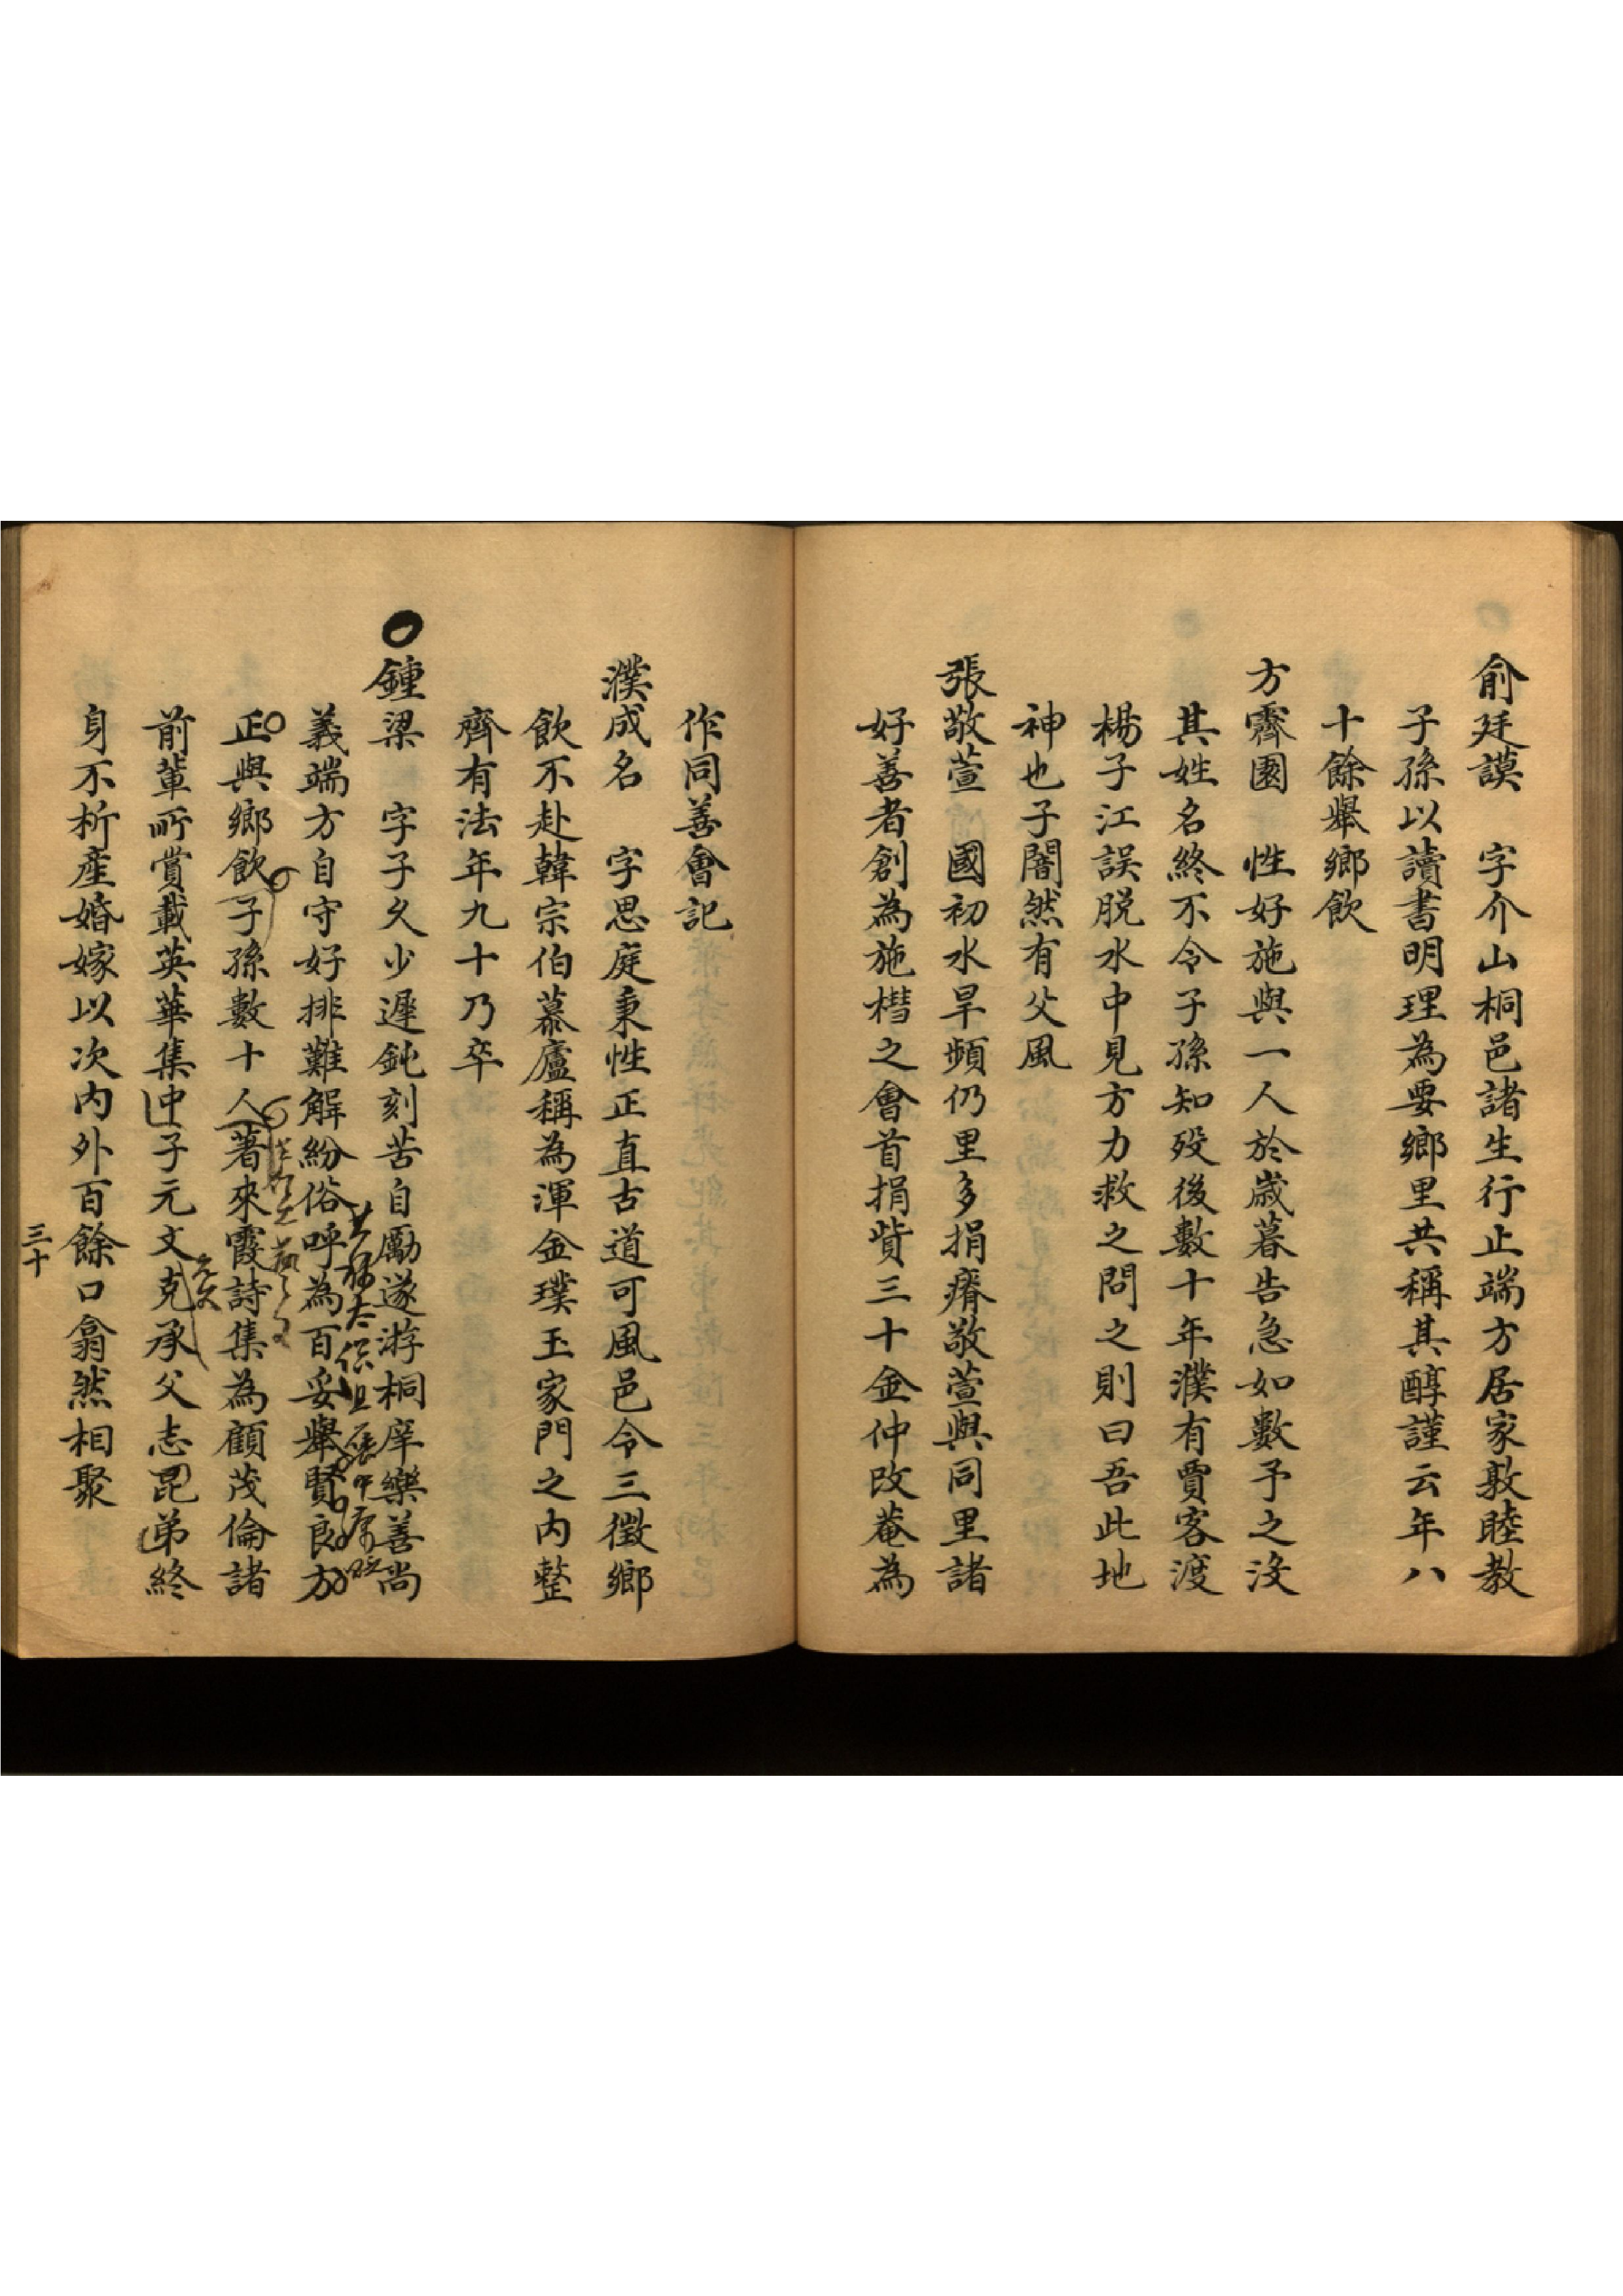 俞廷謨　字介山桐邑諸生行止端方居家敦睦教
子孫以讀書明理為要鄉里共稱其醇謹云年八
十餘舉鄉飲
方霽園　性好施與一人於歲暮告急如數予之沒
其姓名終不令子孫知歿後數十年濮有賈客渡
楊子江誤脫水中見方力救之問之則曰吾此地
神也子闇然有父風
張敬萱　國初水旱頻仍里多捐瘠敬萱與同里諸
好善者創為施槥之會首捐貲三十金仲改菴為
作同善會記
濮成名　字思庭秉性正直古道可風邑令三徵鄉
飲不赴韓宗伯慕廬稱為渾金璞玉家門之内整
齊有法年九十乃卒
鍾梁　字子久少遲鈍刻苦自勵遂游桐庠樂善尚
義端方自守好排難解紛俗呼為百妥舉賢良方
正與鄉飲子孫數十人著來霞詩集為顧茂倫諸
前輩所賞載英華集中子元文克承父志昆弟終
身不析產婚嫁以次内外百餘口翕然相聚
三十